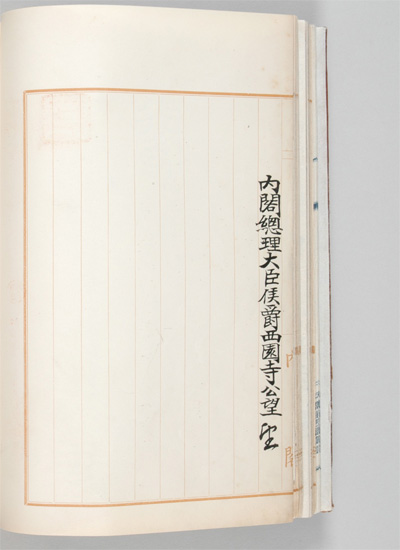 内閣總理大臣侯爵西園寺公望